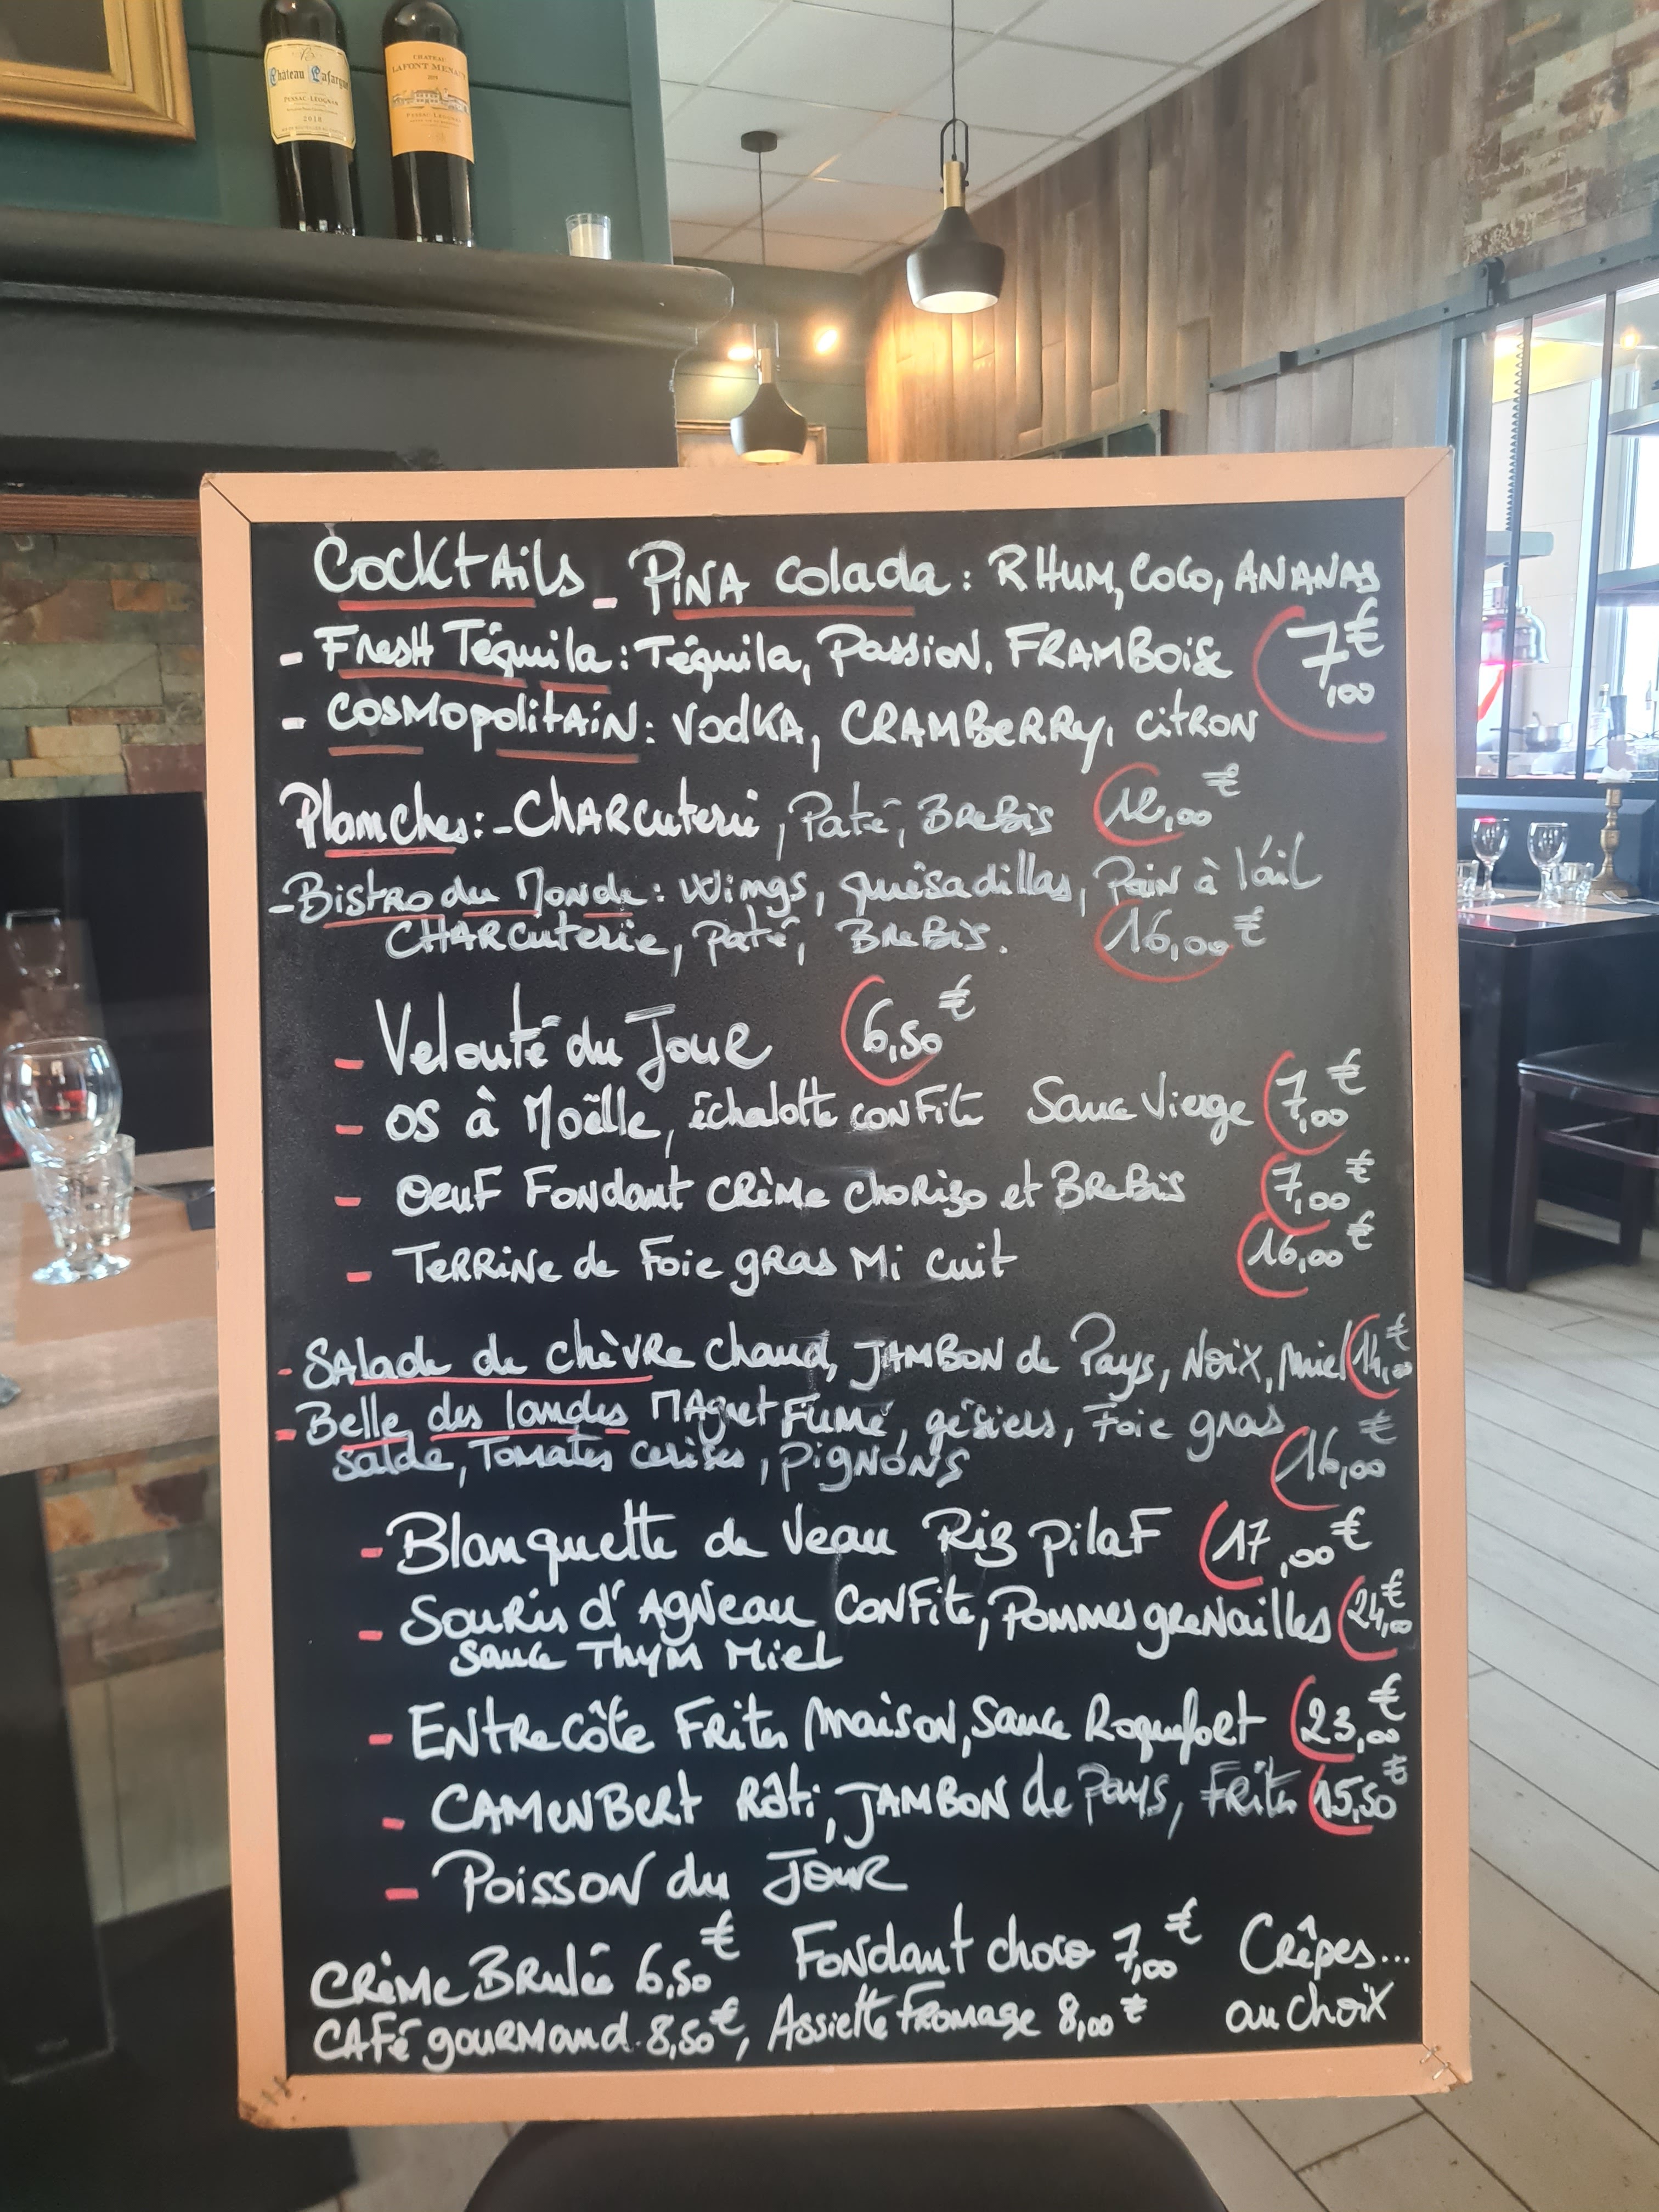 Château Lafargue
PESSAC-LÉOGNAN
2018
CHATEAU
LAFONT MENAUT
PESSAC-LÉOGNAN
Cocktails - Pina Colada : Rhum, Coco, Ananas
- Fresh Téquila : Téquila, Passion, Framboise 7,00€
- Cosmopolitain : Vodka, Cramberry, Citron
Planches : - Charcuterie, Paté, Brebis 12,00€
- Bistro du Monde : Wings, quésadillas, Pain à l'ail
Charcuterie, Paté, Brebis. 16,00€
- Velouté du Jour 6,50€
- Os à Moëlle, échalotte confite Sauce Vierge 7,00€
- Oeuf Fondant crème Chorizo et Brebis 7,00€
- Terrine de Foie gras Mi Cuit 16,00€
- Salade de chèvre chaud, Jambon de Pays, Noix, Miel 14,00€
- Belle des landes Magret Fumé, gésiers, Foie gras
salde, Tomates cerises, pignons 16,00€
- Blanquette de Veau Riz pilaf 17,00€
- Souris d'Agneau Confite, Pommes grenailles 24,00€
Sauce Thym Miel
- Entrecôte Frites Maison, Sauce Roquefort 23,00€
- Camenbert Rôti, Jambon de Pays, Frites 15,50€
- Poisson du Jour
Crème Brulée 6,50€ Fondant choco 7,00€ Crêpes...
Café gourmand 8,50€, Assiette Fromage 8,00€ au choix